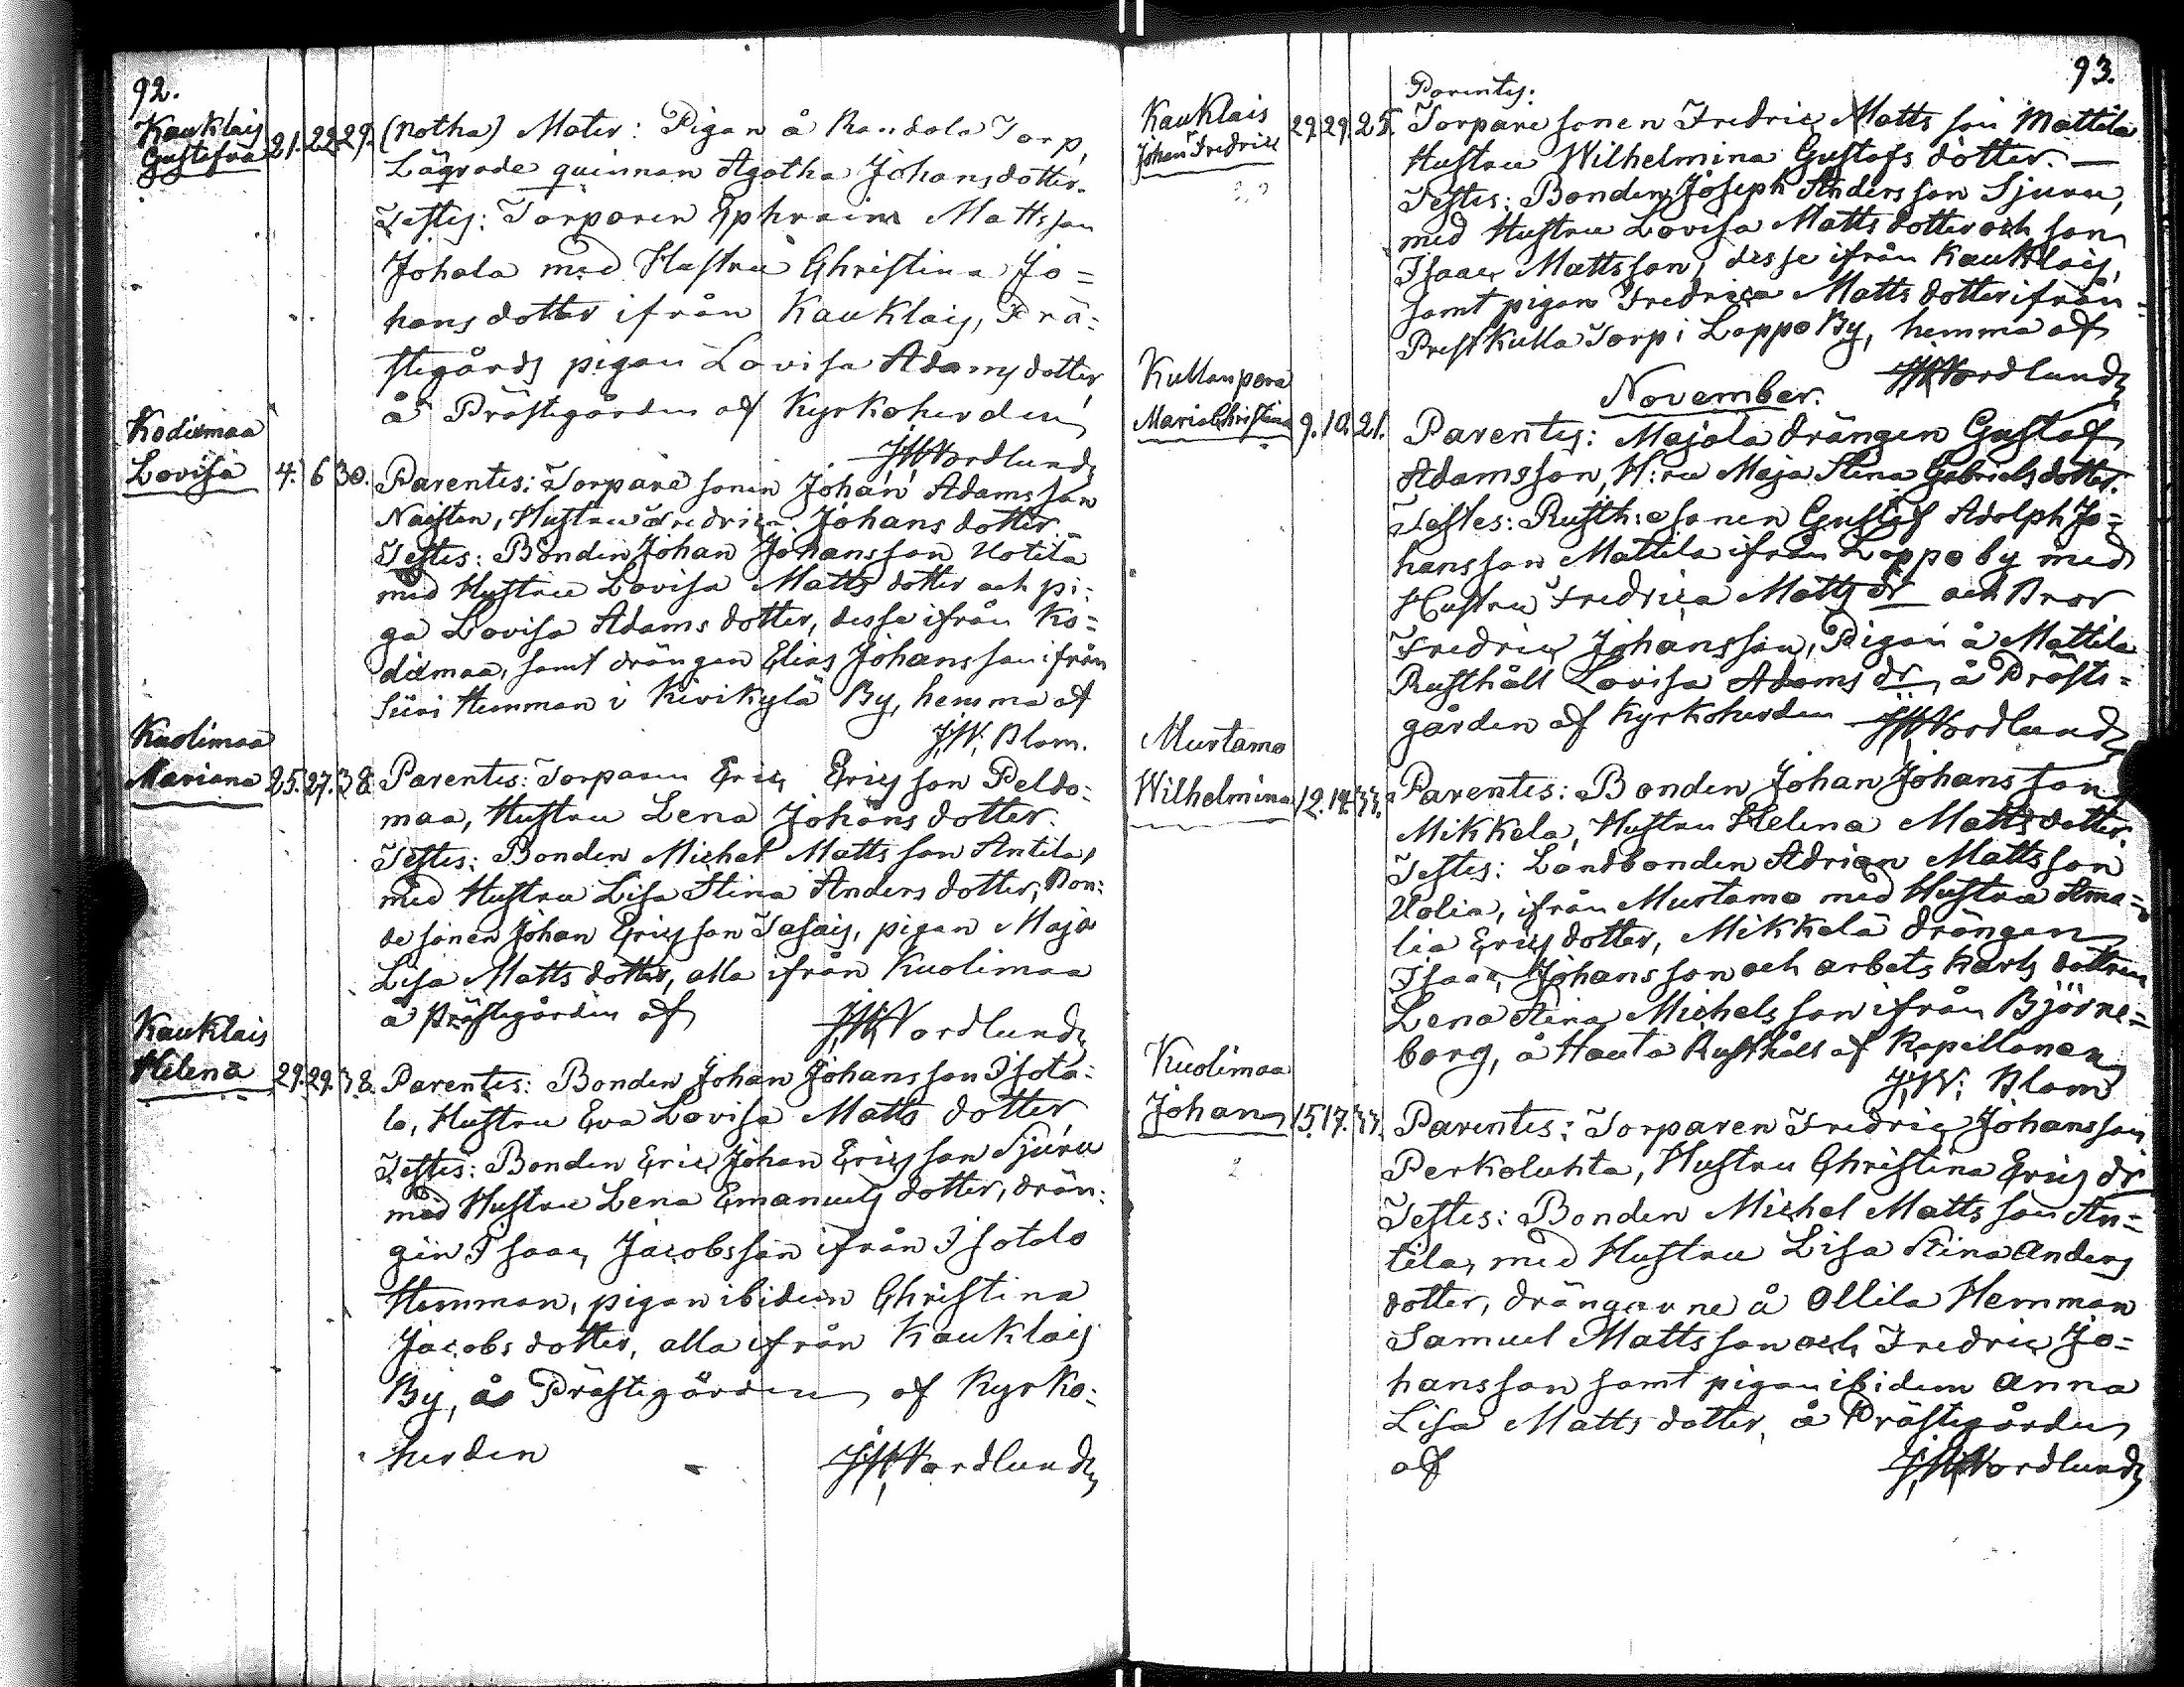 92.
Kauklais
Gustafva 21. 22. 29. (Notha) Mater: Pigan å Randala Torp,
Lägrade quinnan Agatha Johansdotter.
Testes: Torparen Ephraim Mattsson
Johala med Hustru Christina Jo=
hans dotter ifrån Kauklais, Prä=
stegårds pigan Lovisa Adams dotter
å Prästegården af Kyrkoherden
Nordlund
Kodixmaa
Lovisa 4. 6 30. Parentes: Torpare sonen Johan Adamsson
Naisten, Hustru Fredrica Johans dotter
Testes: Bonden Johan Johansson Uotila
med Hustru Lovisa Matts dotter och pi=
ga Lovisa Adams dotter, desse ifrån Ko=
dixmaa, samt drängen Elias Johansson ifrån
Hemman i Kivikylä By, hemma af
J.W. Blom.
Kuolimaa
Mariana 25. 27. 38. Parentes: Torparen Eric Ericsson Peldo=
maa, Hustru Lena Johans dotter.
Testes: Bonden Michel Mattsson Antila,
med Hustru Lisa Stina Anders dotter, Bon=
de sonen Johan Ericsson, pigan Maja
Lisa Matts dotter, alla ifrån Kuolimaa
å Prästegården af Nordlund
Kauklais
Helena 29. 29. 38. Parentes: Bonden Johan Johansson Isota=
lo, Hustru Eva Lovisa Matts dotter
Testes: Bonden Eric Johan Ericsson Sjuru
med Hustru Lena Emanuels dotter, drän=
gen Isaac Jacobsson ifrån Isotalo
Hemman, pigan ibidem Christina
Jacobs dotter, alla ifrån Kauklais
By, å Prästegården af Kyrko=
herden Nordlund
93.
Parentes:
Kauklais
Johan Fredric 29. 29. 25. Torpare sonen Fredric Matts son Mattila
Hustru Wilhelmina Gustafs dotter. —
Testes: Bonden Joseph Andersson Sjuru,
med Hustru Lovisa Matts dotter och son
Isaac Mattsson, desse ifrån Kauklais,
samt pigan Fredrica Matts dotter ifrån
Prestkulla Torp i Lappo By, hemma af
Nordlund
November.
Kullanpera
Maria Christina 9. 10. 21. Parentes: Majala drängen Gustaf
Adamsson, H:ru Maja Stina Gabriels dotter.
Testes: Rusth: sonen Gustaf Adolph Jo=
hansson Mattila ifrån Lappo by med
Hustru Fredrica Matts dr och Bror
Fredric Johansson, Pigan å Mattila
Rusthåll Lovisa Adams dr, å Präste=
gården af Kyrkoherden Nordlund
Murtamo
Wilhelmina 12. 14. 33. Parentes: Bonden Johan Johansson
Mikkela, Hustru Helena Matts dotter.
Testes: Landbonden Adrian Mattsson
Uolia, ifrån Murtamo med Hustru Ama=
lia Erics dotter, Mikkelä drängen
Isaac Johansson och arbets karls dottren
Lena Stina Michelsson ifrån Björne=
borg, å Hauta Rusthåll af Kapellanen
J.W. Blom
Kuolimaa
Johan 15. 17. 33. Parentes: Torparen Fredric Johansson
Perkoluhta, Hustru Christina Erics dr
Testes: Bonden Michel Mattsson An=
tila, med Hustru Lisa Stina Anders
dotter, drängarne å Ollila Hemman
Samuel Mattsson och Fredric Jo=
hansson samt pigan ibidem Anna
Lisa Matts dotter, å Prästegården
af Nordlund